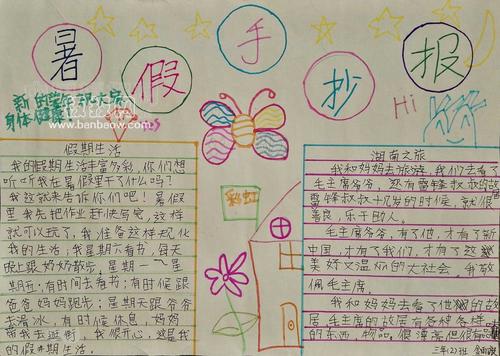 暑假手抄报
新的学年祝大家
身体健康
www.banbaow.com
Hi
彩虹
假期生活
我的假期生活丰富多彩,你们想
听听我在暑假里干了什么吗?
我这就来告诉你们吧!暑假
里我先把作业赶快写完,这样
就可以玩了,我准备这样规化
我的生活:我星期六看书,每天
晚上跟奶奶散步,星期一~星
期五,有时间去看书;有时候跟
爸爸妈妈跑步;星期天跟爷爷
去滑冰,有时候休息,妈妈
带我去逛街,我很开心,这是我
的假期生活。
湖南之旅
我和妈妈去旅游,我们去看了
毛主席爷爷,还有雷锋叔叔的故
雷锋叔叔十几岁的时候,就很
善良,乐于助人。
毛主席爷爷,有了他,才有了新
中国,才有了我们,才有了这
美好又温丽的大社会,我敬
佩毛主席。
我和妈妈去看了他的故
居,毛主席的故居有各种各样
的东西,物品,很漂亮但很有
三年(2)班